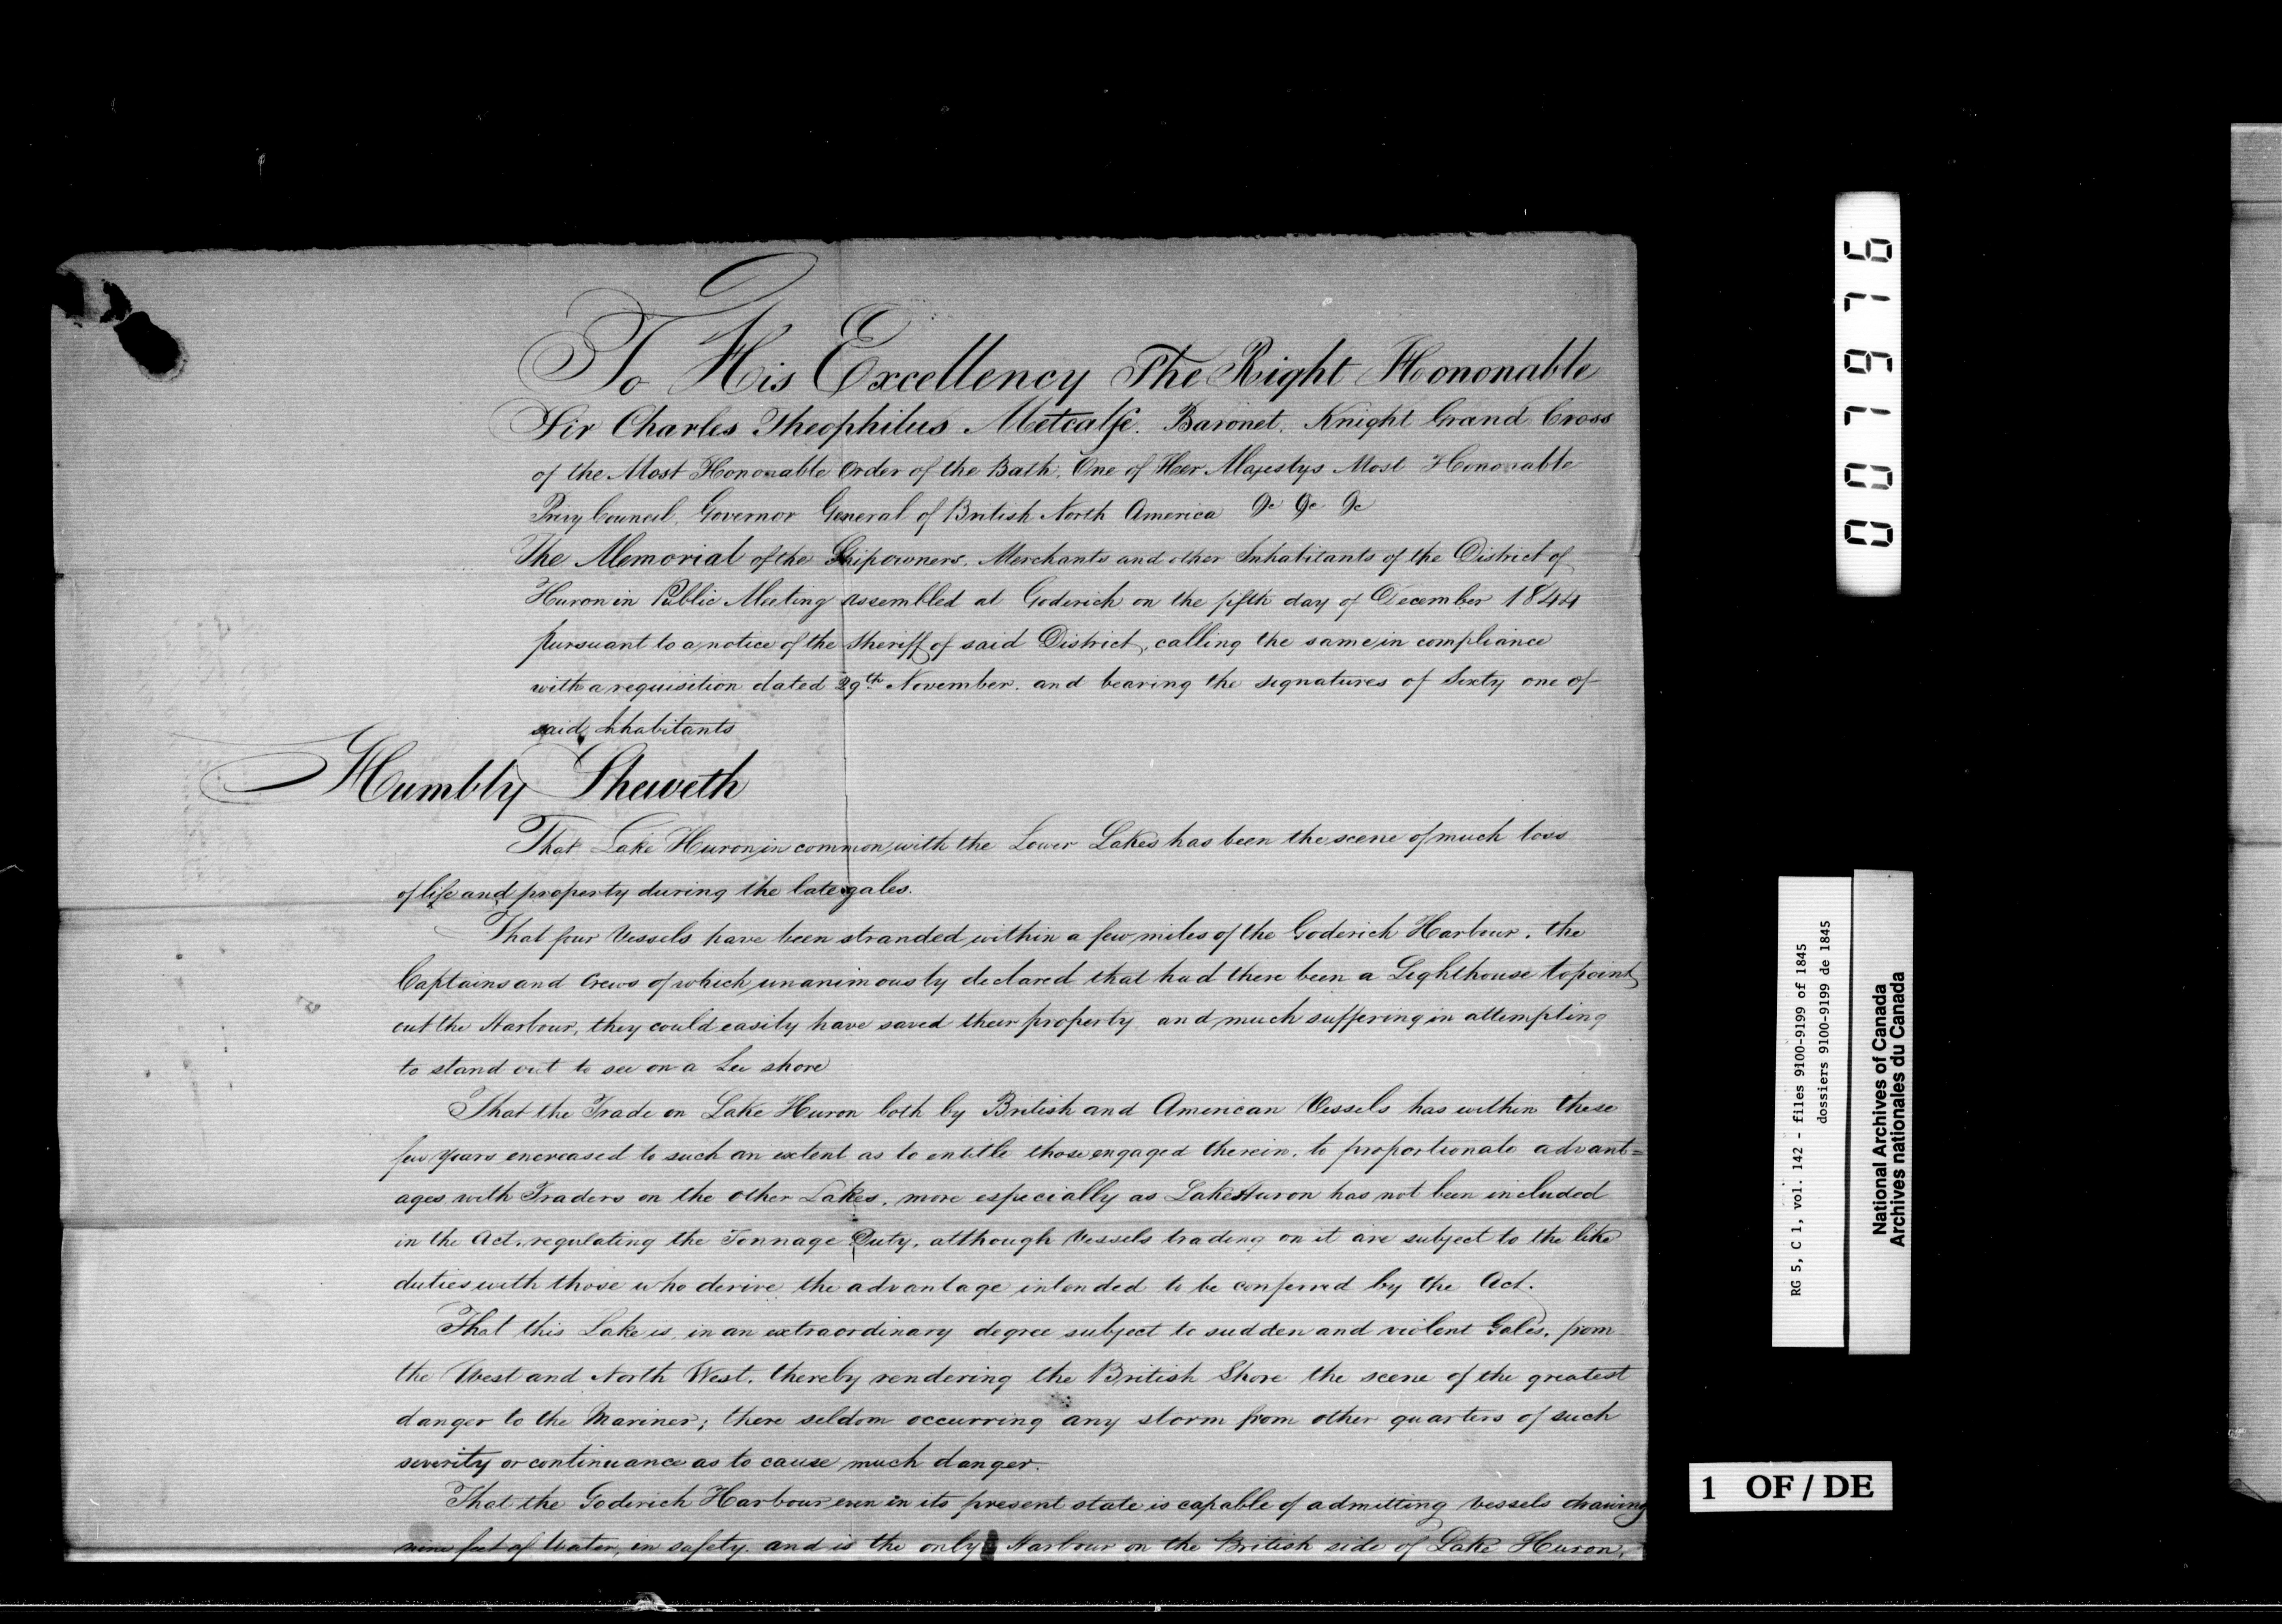 To His Excellency The Right Hononable
Sir Charles Theophilus Metcalfe. Baronet. Knight Grand Cross
of the Most Honorable Order of the Bath. One of Her Majestys Most Honorable
Privy Council. Governor General of British North America &c &c &c
The Memorial of the Shipowners, Merchants and other Inhabitants of the District of
Huron in Public Meeting assembled at Goderich on the fifth day of December 1844
pursuant to a notice of the Sheriff of said District, calling the same in compliance
with a requisition dated 29th November. and bearing the signatures of Sixty one of
said Inhabitants
Humbly Sheweth
That Lake Huron in common with the Lower Lakes has been the scene of much loss
of life and property during the late gales.
That four Vessels have been stranded within a few miles of the Goderich Harbour, the
Captains and Crews of which unanimously declared that had there been a Lighthouse to point
out the Harbour, they could easily have saved their property, and much suffering in attempting
to stand out to see on a Lee shore
That the Trade on Lake Huron both by British and American Vessels has within these
few Years encreased to such an extent as to entitle those engaged therein, to proportionate advant=
ages with Traders on the other Lakes, more especially as Lake Huron has not been included
in the Act, regulating the Tonnage Duty, although Vessels trading on it are subject to the like
duties with those who derive the advantage intended to be conferred by the Act.
That this Lake is, in an extraordinary degree subject to sudden and violent Gales, from
the West and North West, thereby rendering the British Shore the scene of the greatest
danger to the Mariner; there seldom occurring any storm from other quarters of such
severity or continuance as to cause much danger.
That the Goderich Harbour even in its present state is capable of admitting vessels drawing
nine feet of Water, in safety. and is the only Harbour on the British side of Lake Huron,
007976
RG 5, C 1, vol. 142 - files 9100-9199 of 1845
dossiers 9100-9199 de 1845
National Archives of Canada
Archives nationales du Canada
1 OF / DE